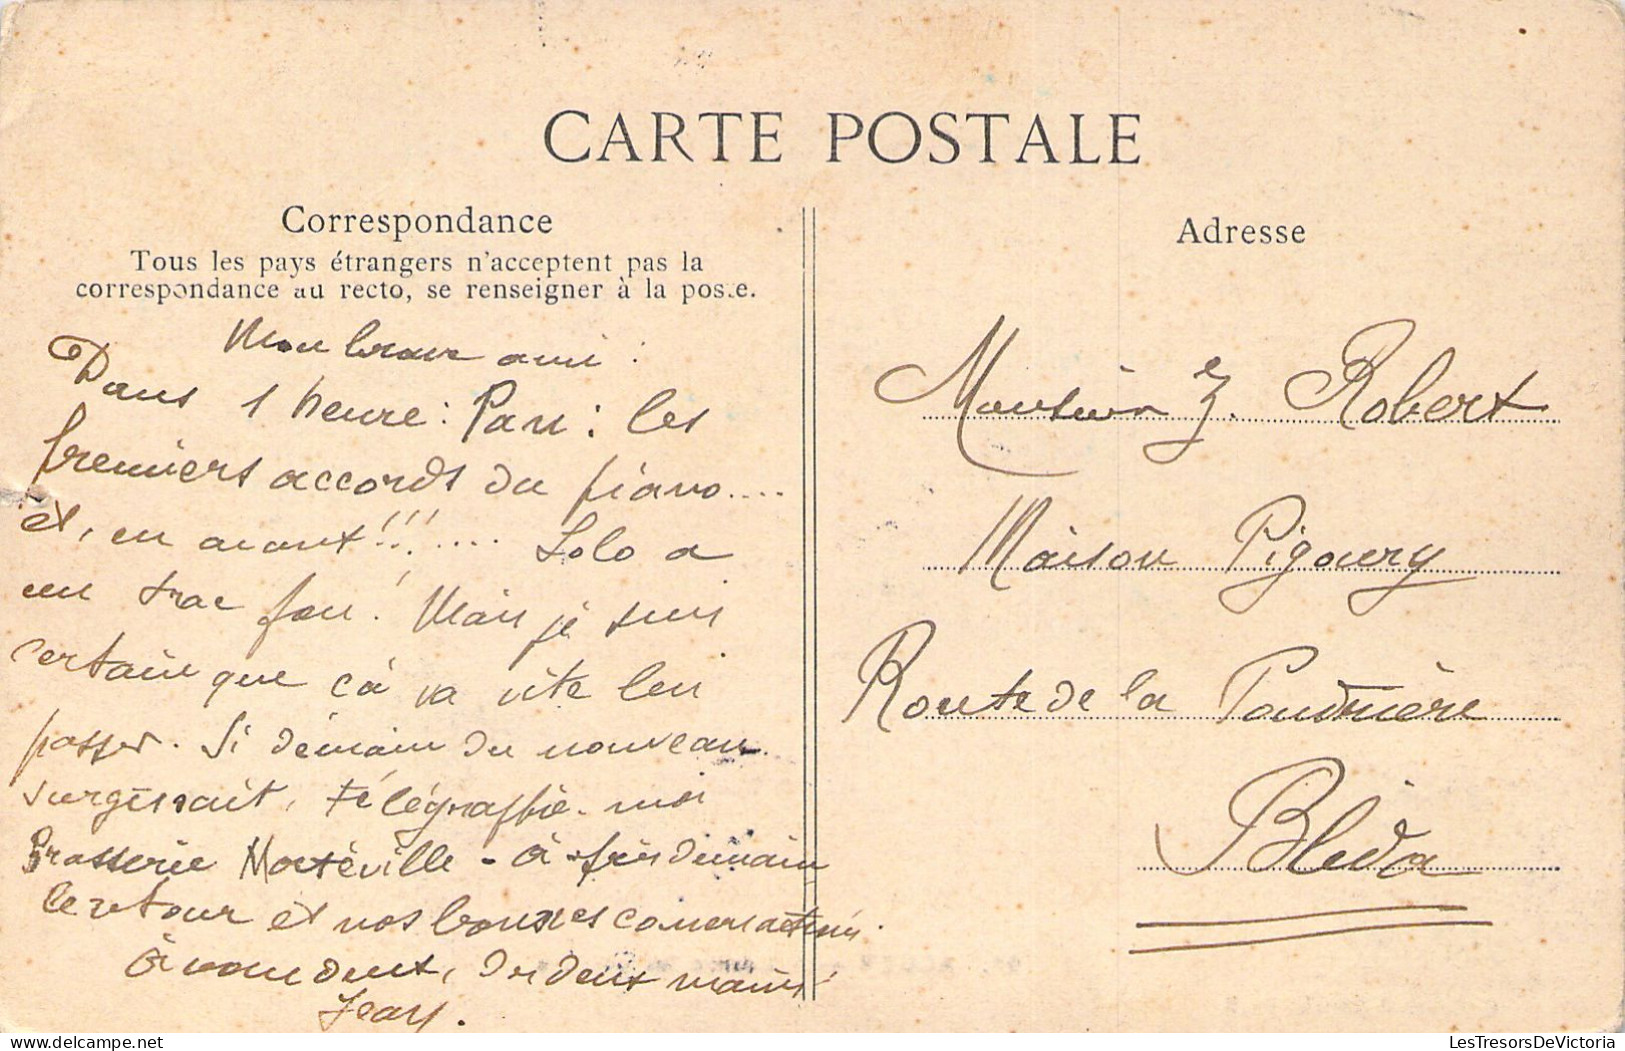 CARTE POSTALE
Correspondance
Tous les pays étrangers n'acceptent pas la
correspondance au recto, se renseigner à la poste.
Mon brave ami :
Dans 1 heure : Pan : les
premiers accords du piano....
et, en avant!!!.... Lolo a
un trac fou! Mais je suis
certain que çà va vite lui
passer. Si demain du nouveau
surgissait, télégraffie-moi
Brasserie Mortéville - à après demain
le retour et nos bonnes conversations.
À vous deux, des deux mains
Jean.
Adresse
Monsieur Z. Robert
Maison Pigoury
Route de la Poudrière
Blida
LesTresorsDeVictoria